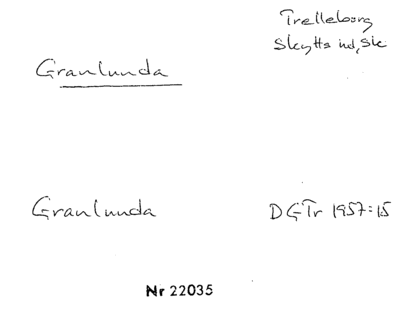 Trelleborg
Skytts hd, Sk
Granlunda
Granlunda DGTr 1957:15
Nr 22035